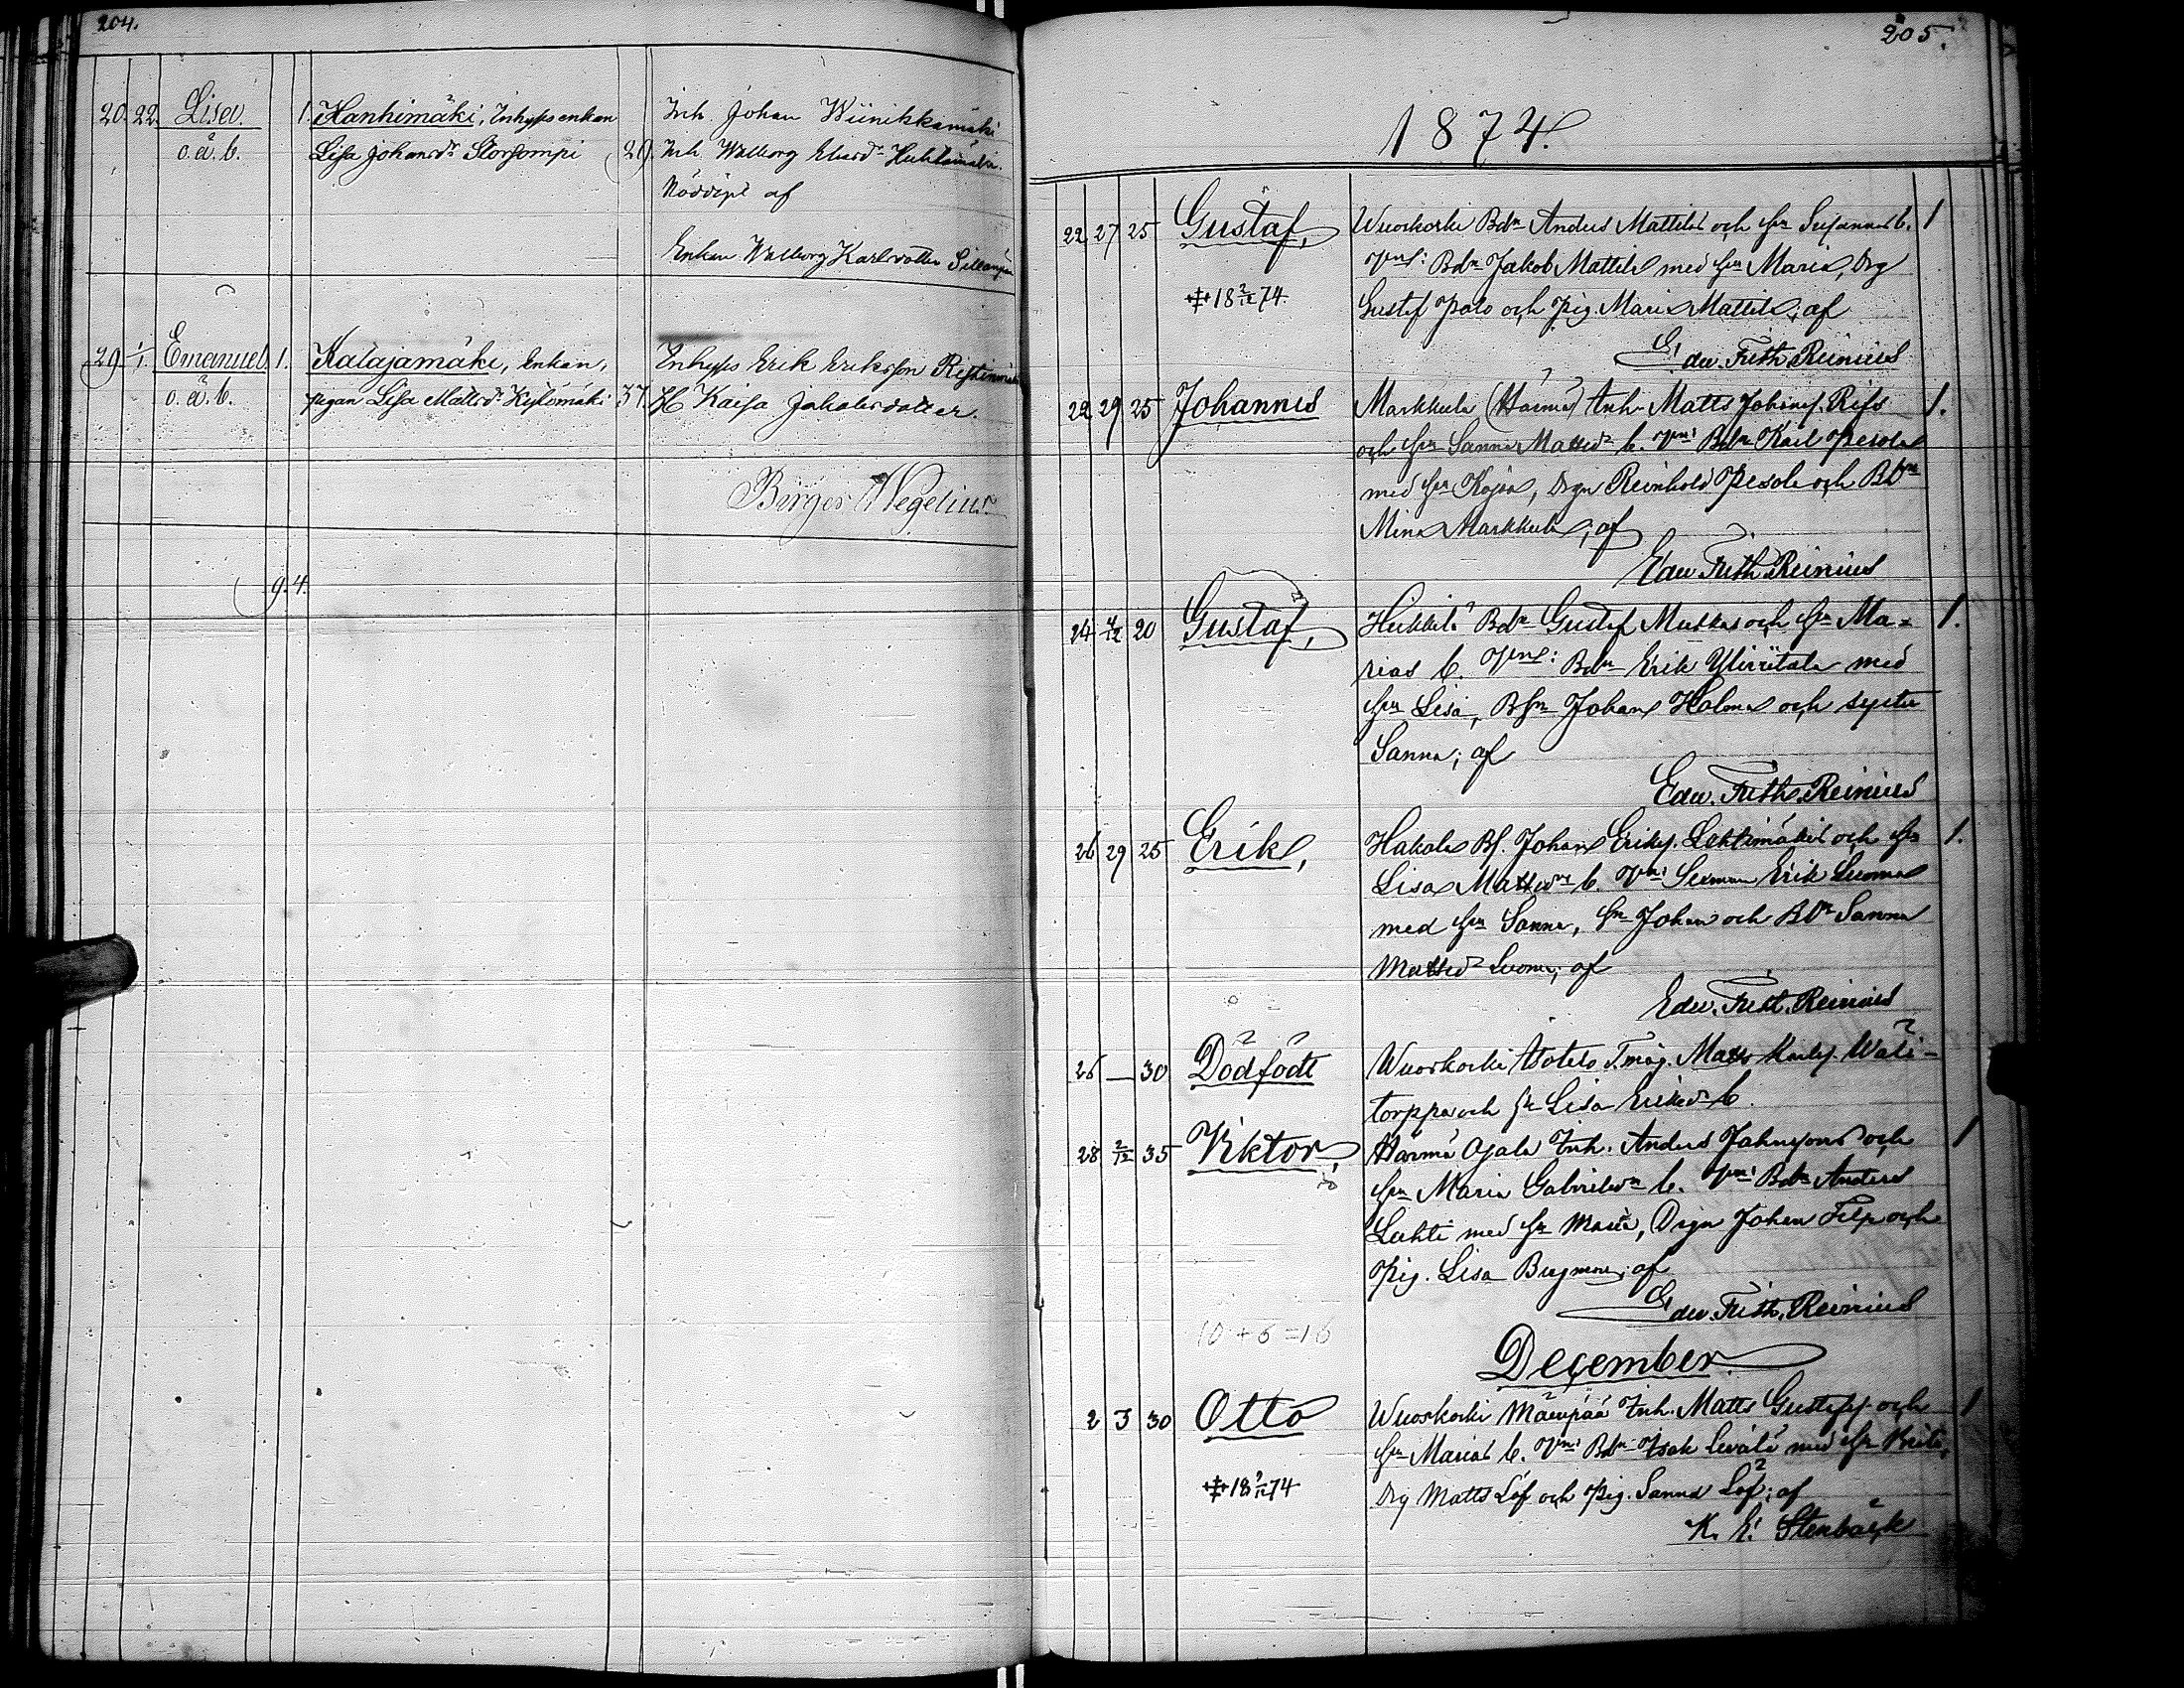 204.
20. 22. Lisa. 1. Hanhimäki, Inhyses enkan
o. ä. b. Lisa Johansdr Storsompi 29.
Inh. Johan Wiinikkamäki
Inh. Walborg Eliasdr Huhtamäki.
Nöddöpt af
Enkan Walborg Karlsdotter
29. 1/1. Emanuel. 1. Katajamäki, Enkan,
o. ä. b. pigan Lisa Mattsdr Kylömäki 37.
Inhyses Erik Eriksson Ristinmäki
H Kaisa Jakobsdotter.
Birger Wegelius
94.
205.
1874.
22 27 25 Gustaf, Wuoskoski Bdn Anders Mattila och hu Susannas b. 1
Vne: Bdn Jakob Mattila med hu Maria, Drg
‡ 18 2/12 74. Gustaf Palo och Pig. Maria Mattila; af
Edw. Frith. Reinius
22 29 25 Johannes Markkula (Härmä) Inh. Matts Johans. Rifs 1.
och hu Sanna Mattsdr b. Vne: Bdn Karl Pesola
med hu Kajsa, Drgn Reinhold Pesola och Bdn
Mina Markkula; af
Edw. Frith. Reinius
24 4/12 20 Gustaf, Heikkilä Bdn Gustaf Mutka och hu Ma- 1.
rias b. Vne: Bdn Erik Yliriitala med
hu Lisa, Bsn Johan Holma och syster
Sanna; af
Edw. Frith. Reinius
26 29 25 Erik, Hakola Bs. Johan Eriks. Lehtimäki och hu 1.
Lisa Mattsdrs b. Vne: Sexman Erik Luoma
med hu Sanna, Sn Johan och Bdr Sanna
Mattsdr Luoma; af
Edw. Frith. Reinius
26 — 30 Dödfödt Wuoskoski Torp. Matts Karls. Wäli-
torppa och hu Lisa Eriksdr b.
28 2/12 35 Viktor, Härmä Ojala Inh. Anders Johnssons och 1
hu Maria Gabrielsdrs b. Vne: Bdn Anders
Lahti med hu Maria, Drgn Johan Filp och
Pig. Lisa Bergman; af
Edw. Frith. Reinius
10 + 6 = 16
December.
2 3 30 Otto Wuoskoski Mäenpää Inh. Matts Gustafs. och 1
hu Marias b. Vne: Bdn Isak med hu Brita,
‡ 18 9/12 74 Drg Matts Löf och Pig. Sanna Löf; af
K. E. Stenbäck